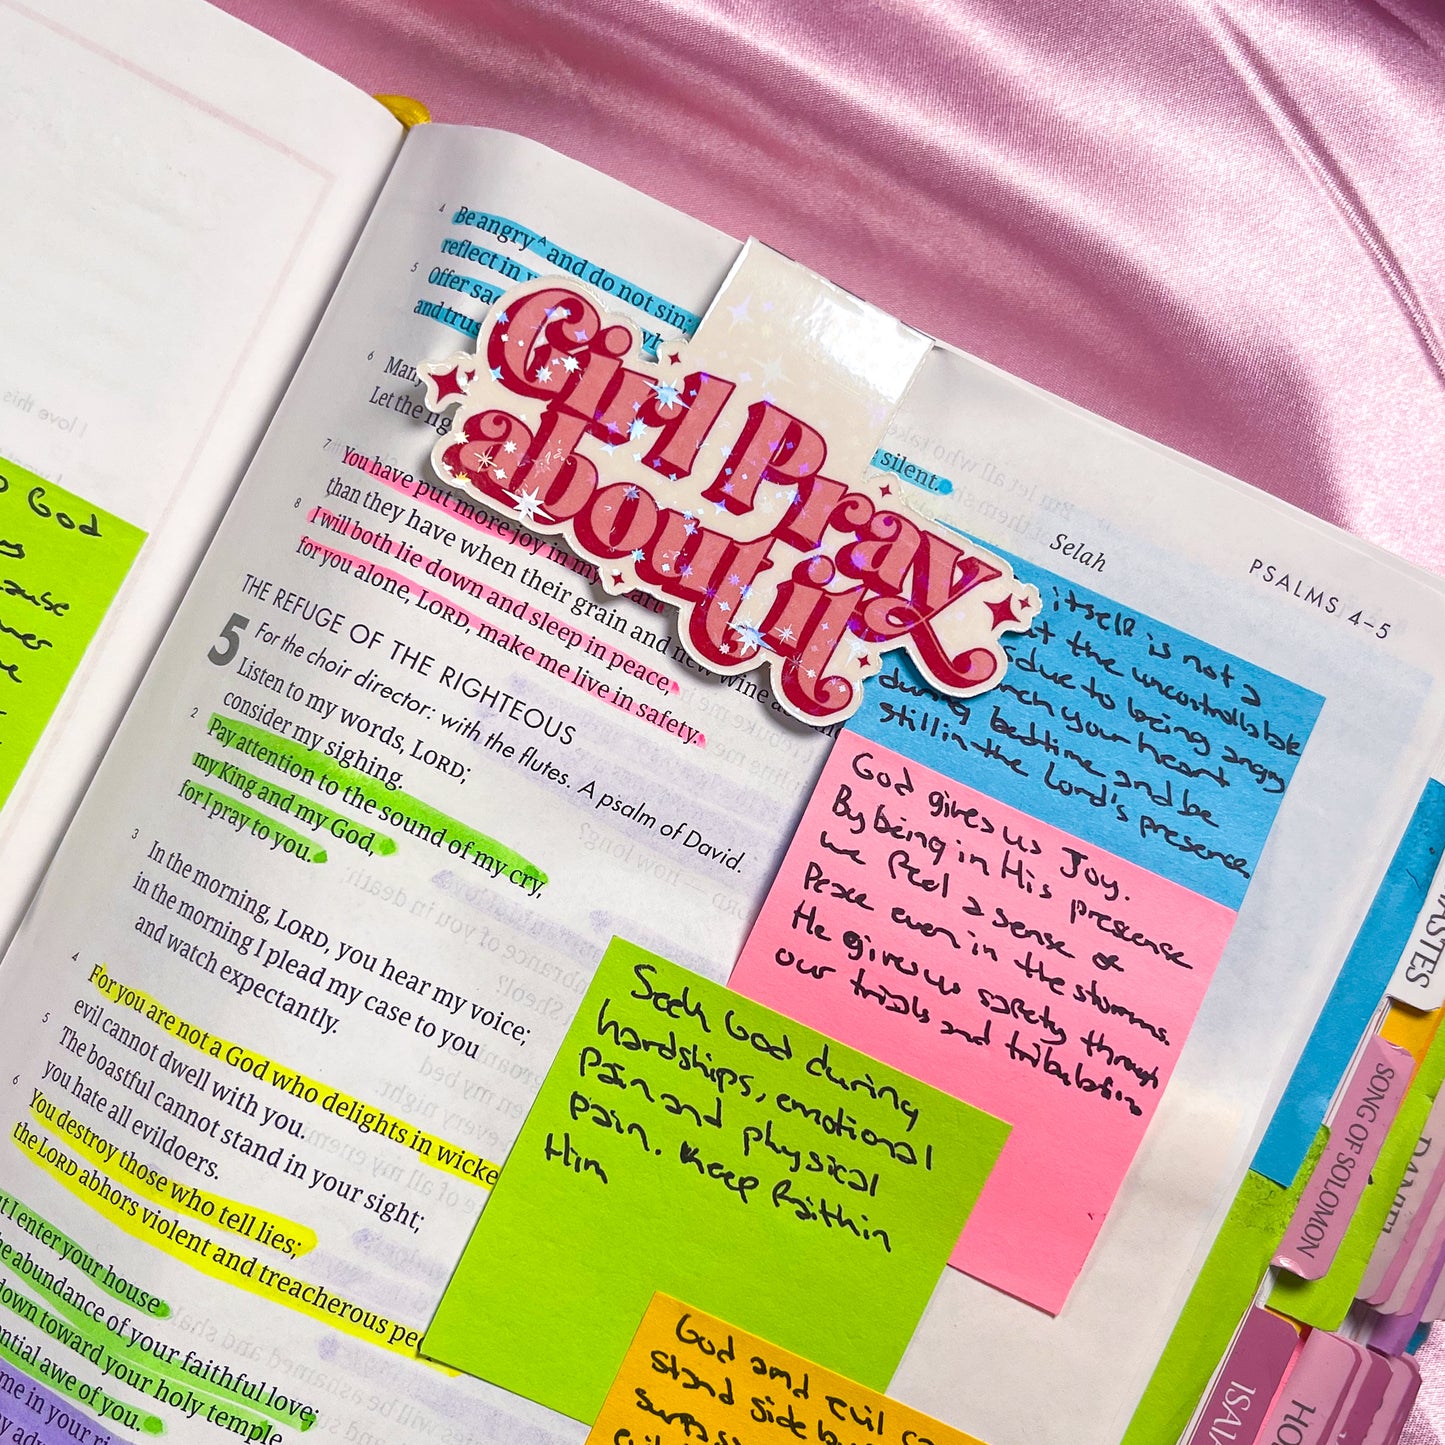 4 Be angry A and do not sin;
reflect in
5 Offer
and
6
Let the
silent.
Selah
PSALMS 4–5
Girl Pray
about it
7 You have put more joy in my
than they have when their grain and new wine
8 I will both lie down and sleep in peace,
for you alone, LORD, make me live in safety.
THE REFUGE OF THE RIGHTEOUS
5 For the choir director: with the flutes. A psalm of David.
Listen to my words, LORD;
consider my sighing.
2 Pay attention to the sound of my cry,
my King and my God,
for I pray to you.
3 In the morning, LORD, you hear my voice;
in the morning I plead my case to you
and watch expectantly.
4 For you are not a God who delights in
evil cannot dwell with you.
5 The boastful cannot stand in your sight;
you hate all evildoers.
6 You destroy those who tell lies;
the LORD abhors violent and treacherous
I enter your house
abundance of your faithful love;
down toward your holy temple
awe of you.
me in your
itself is not a
the uncontrollable
due to being angry
your heart
during bedtime and be
still in the Lord's presence
God gives us Joy.
By being in His presense
we feel a sense of
Peace even in the storms.
He gives us safety through
our trials and tribulations
Seek God during
hardships, emotional
pain and physical
pain. Keep faith in
Him
God and evil
stand side
God
SONG OF SOLOMON
DANIEL